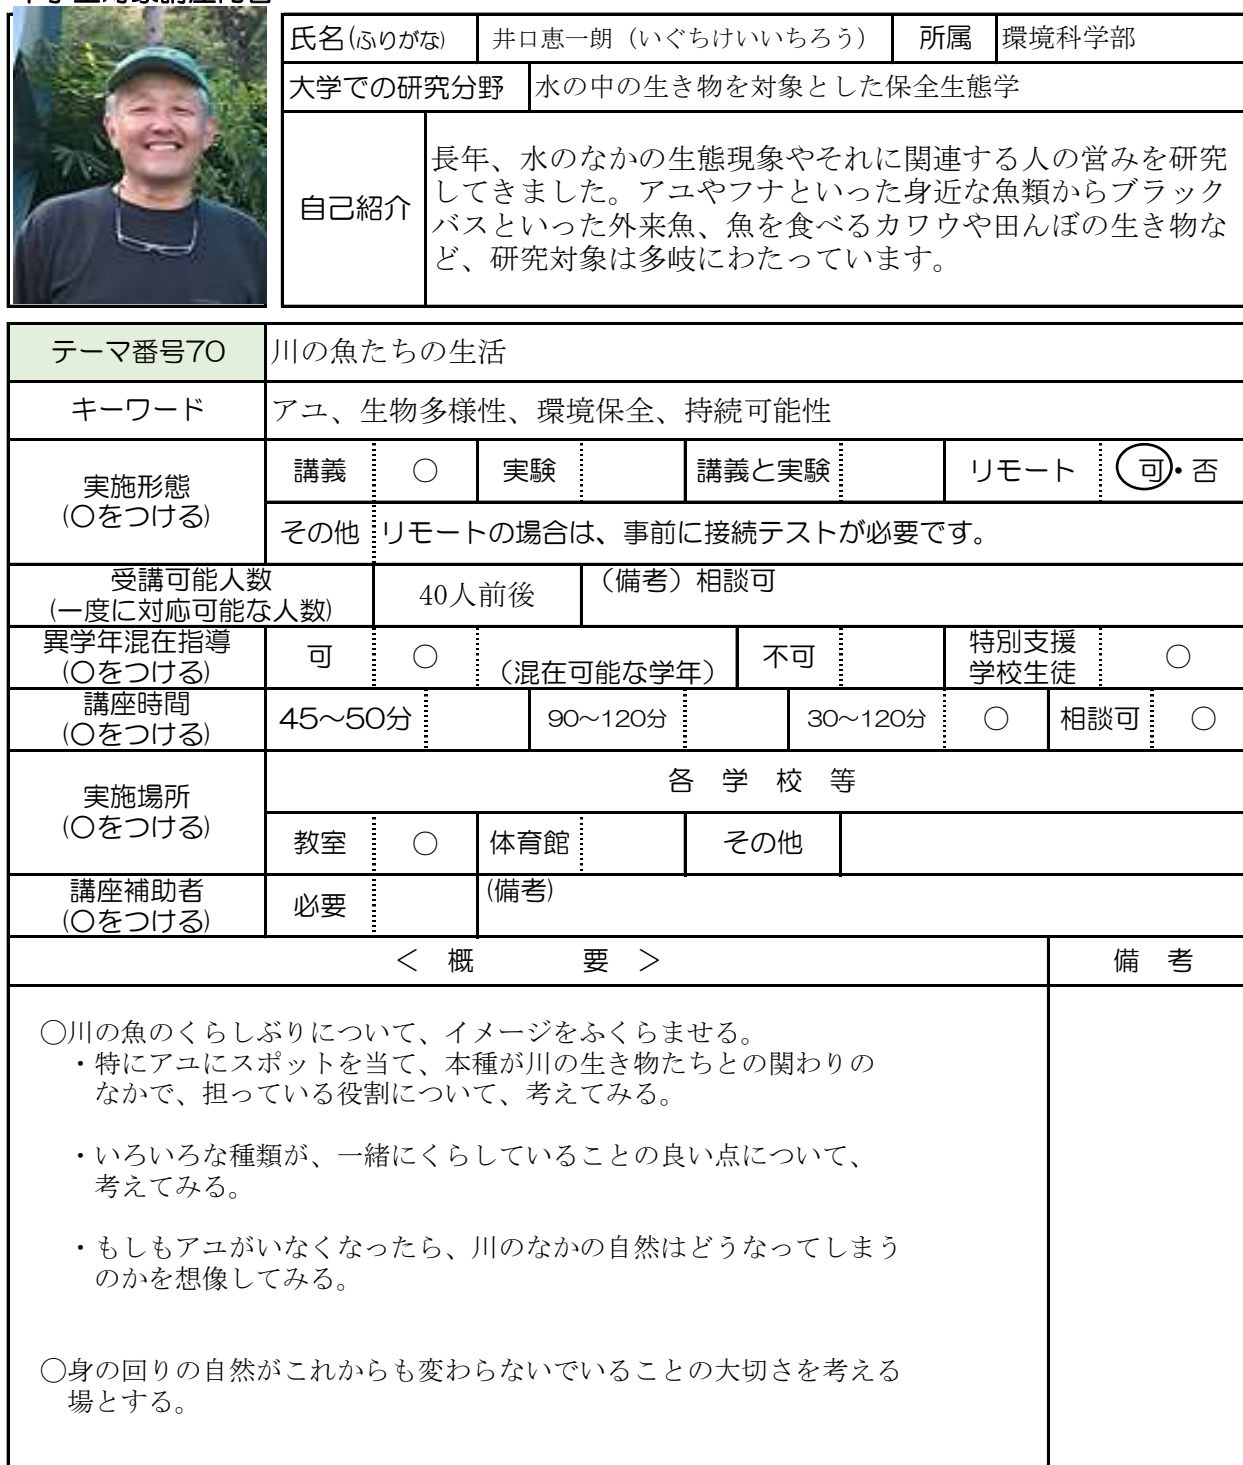 氏名(ふりがな) 井口恵一朗（いぐちけいいちろう） 所属 環境科学部
大学での研究分野 水の中の生き物を対象とした保全生態学
自己紹介
長年、水のなかの生態現象やそれに関連する人の営みを研究
してきました。アユやフナといった身近な魚類からブラック
バスといった外来魚、魚を食べるカワウや田んぼの生き物な
ど、研究対象は多岐にわたっています。
テーマ番号70 川の魚たちの生活
キーワード アユ、生物多様性、環境保全、持続可能性
実施形態
(○をつける)
講義 ○ 実験 講義と実験 リモート 可・否
その他 リモートの場合は、事前に接続テストが必要です。
受講可能人数
(一度に対応可能な人数)
40人前後 （備考）相談可
異学年混在指導
(○をつける)
可 ○ （混在可能な学年） 不可 特別支援
学校生徒 ○
講座時間
(○をつける)
45～50分 90～120分 30～120分 ○ 相談可 ○
実施場所
(○をつける)
各 学 校 等
教室 ○ 体育館 その他
講座補助者
(○をつける)
必要 (備考)
＜ 概 要 ＞ 備 考
○川の魚のくらしぶりについて、イメージをふくらませる。
・特にアユにスポットを当て、本種が川の生き物たちとの関わりの
なかで、担っている役割について、考えてみる。
・いろいろな種類が、一緒にくらしていることの良い点について、
考えてみる。
・もしもアユがいなくなったら、川のなかの自然はどうなってしまう
のかを想像してみる。
○身の回りの自然がこれからも変わらないでいることの大切さを考える
場とする。